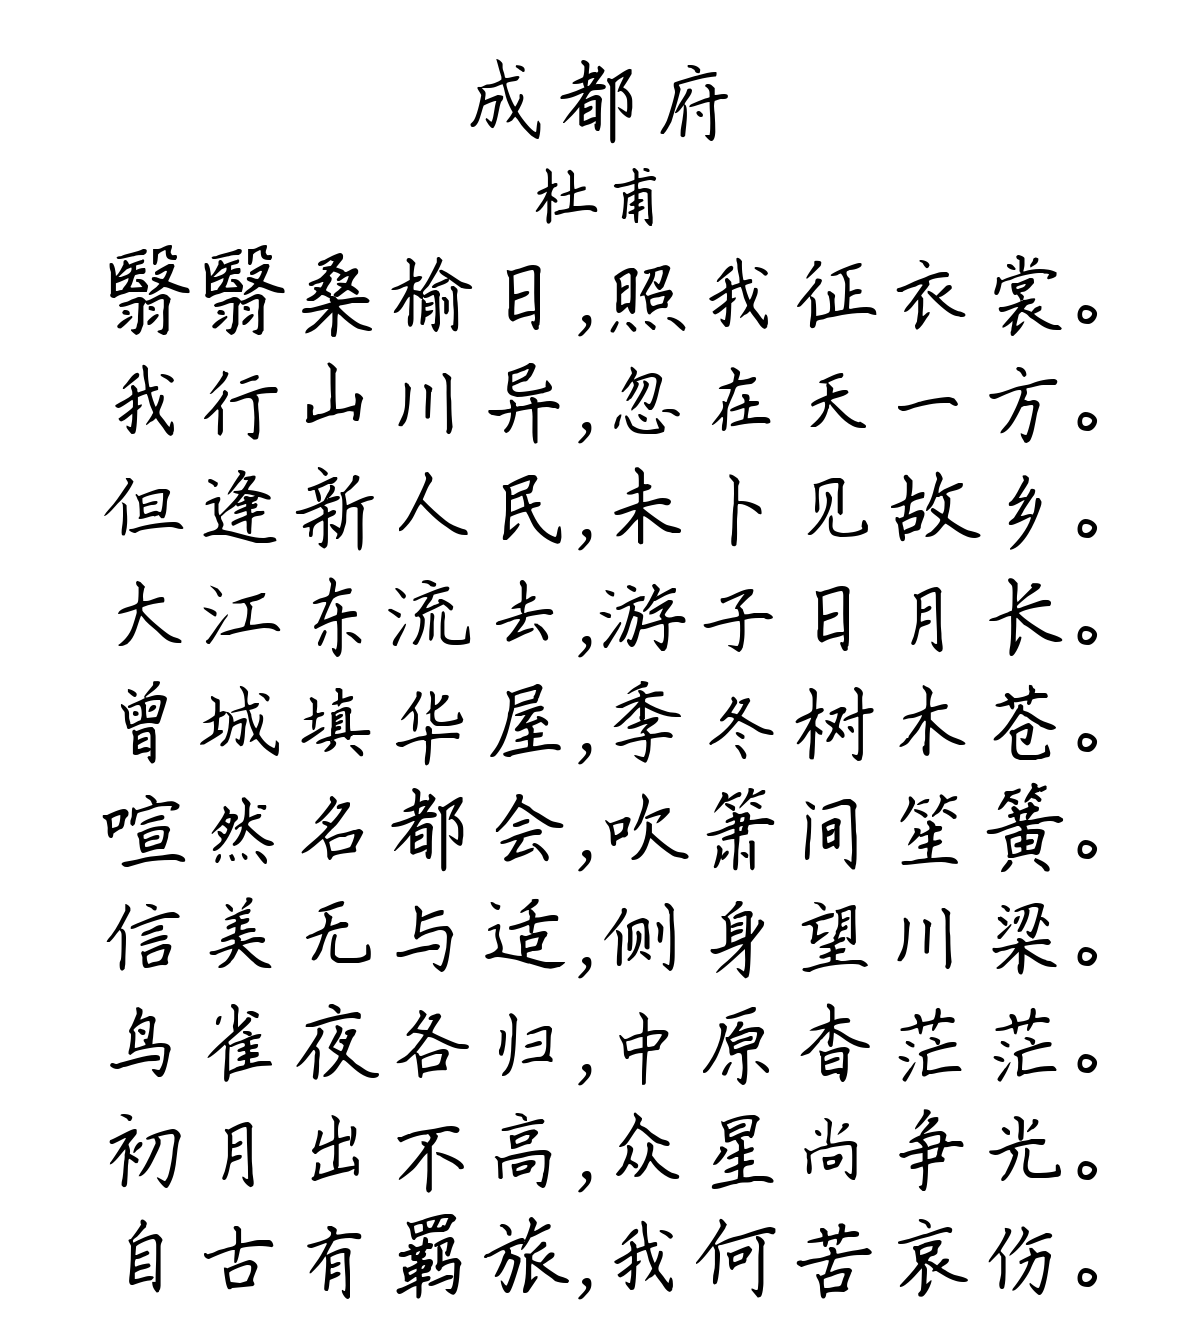 成都府
杜甫
翳翳桑榆日,照我征衣裳。
我行山川异,忽在天一方。
但逢新人民,未卜见故乡。
大江东流去,游子日月长。
曾城填华屋,季冬树木苍。
喧然名都会,吹箫间笙簧。
信美无与适,侧身望川梁。
鸟雀夜各归,中原杳茫茫。
初月出不高,众星尚争光。
自古有羁旅,我何苦哀伤。